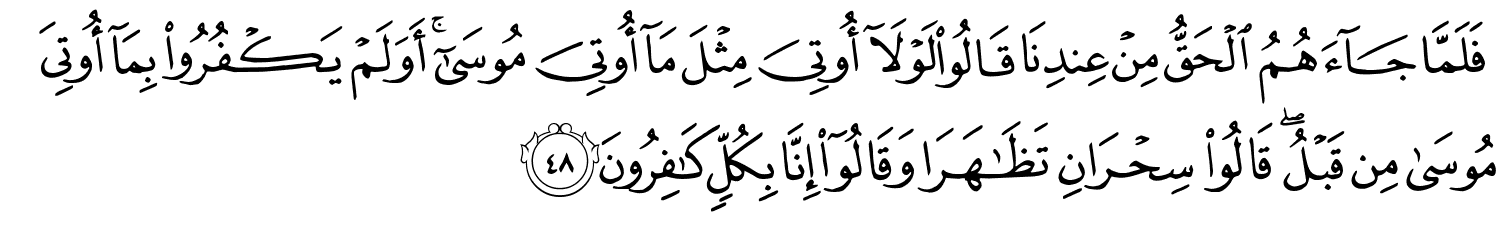 فَلَمَّا جَآءَهُمُ ٱلْحَقُّ مِنْ عِندِنَا قَالُوا۟ لَوْلَآ أُوتِىَ مِثْلَ مَآ أُوتِىَ مُوسَىٰٓ ۚ أَوَلَمْ يَكْفُرُوا۟ بِمَآ أُوتِىَ
مُوسَىٰ مِن قَبْلُ ۖ قَالُوا۟ سِحْرَانِ تَظَـٰهَرَا وَقَالُوٓا۟ إِنَّا بِكُلٍّ كَـٰفِرُونَ ٤٨